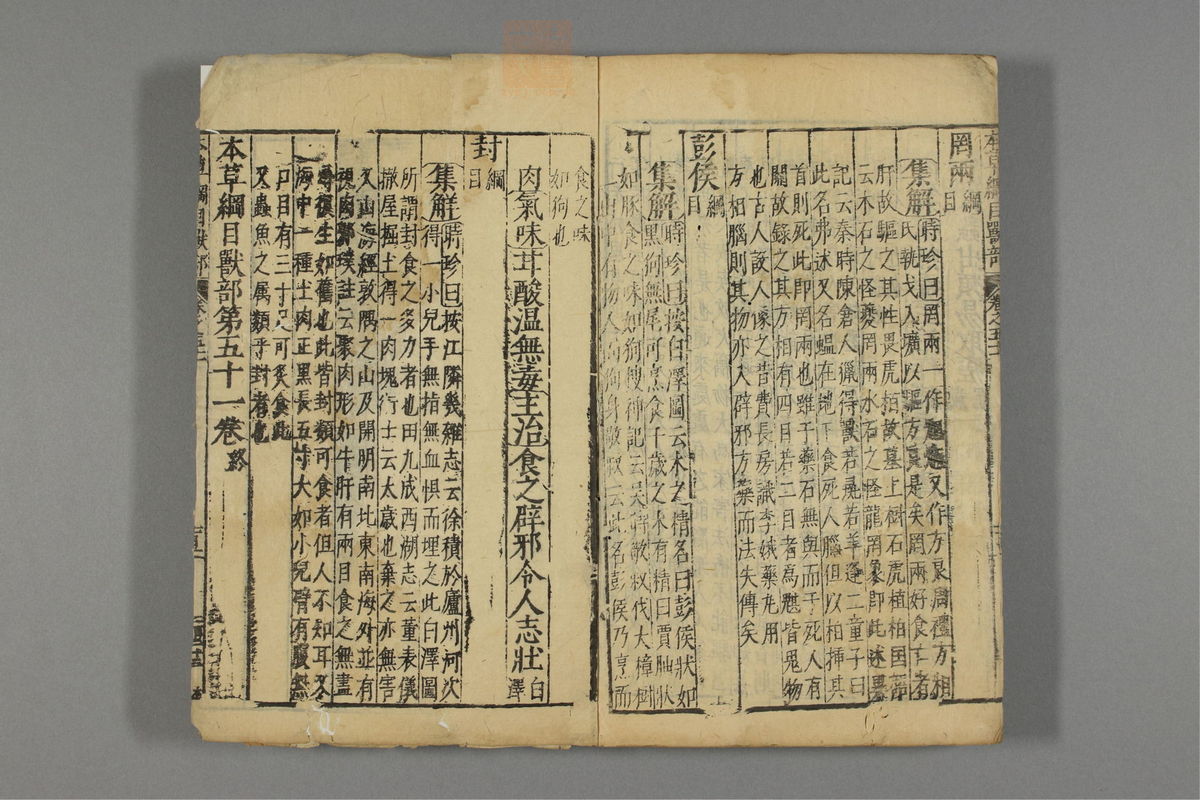 本草綱目獸部 卷之五十一
罔兩綱目
集解時珍曰罔兩一作魍魎又作方良周禮方相
氏執戈入壙以驅方良是矣罔兩好食亡者
肝故驅之其性畏虎柏故墓上樹石虎植柏國語
云木石之怪夔罔兩水石之怪龍罔象即此述異
記云秦時陳倉人獵得獸若彘若羊逢二童子曰
此名弗述又名蝹在地下食死人腦但以柏插其
首則死此即罔兩也雖于藥石無與而于死人有
關故錄之其方相有四目若二目者為魌皆鬼物
也古人設人像之昔費長房識李娥藥丸用
方相腦則其物亦入辟邪方藥而法失傳矣
彭侯綱目
集解時珍曰按白澤圖云木之精名曰彭侯狀如
黑狗無尾可烹食千歲之木有精曰賈朏狀
如豚食之味如狗搜神記云吳時敬叔伐大樟樹
中有物人面狗身敬叔云此名彭侯乃烹而
食之味
如狗也
肉氣味甘酸温無毒主治食之辟邪令人志壯白澤
封綱目
集解時珍曰按江隣幾雜志云徐積於廬州河次
得一小兒手無指無血惧而埋之此白澤圖
所謂封食之多力者也田九成西湖志云董表儀
撤屋掘土得一肉塊術士云太歲也棄之亦無害
又山海經敦隅之山及開明南北東南海外並有
視肉郭璞註云聚肉形如牛肝有兩目食之無盡
尋復生如舊也此皆封類可食者但人不知耳又
海中一種土肉正黑長五寸大如小兒臂有腹無
口目有三十足可炙食此
又蟲魚之属類乎封者也
本草綱目獸部第五十一卷終
本草綱目獸部 卷之五十一